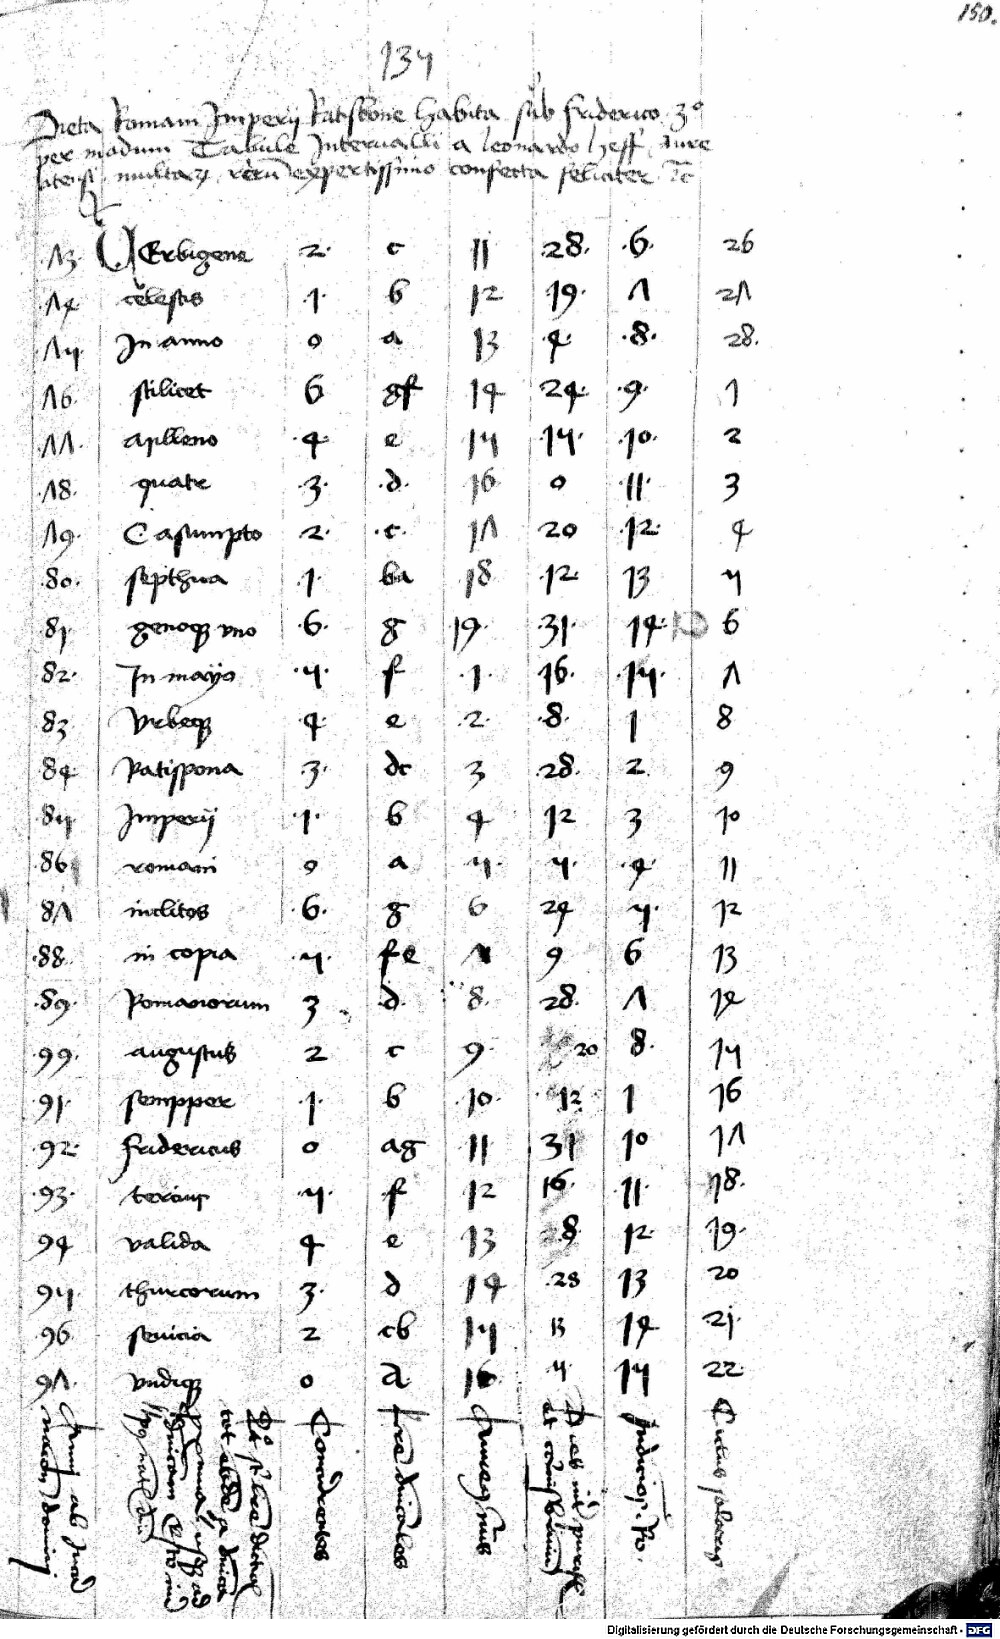 150.
134
Dieta Romani Imperij Ratisbone habita sub friderico 3º
per modum Tabule Intervalli a leonardo heff Jure
multarum rerum expertissimo confecta feliciter
73 Verbigene 2 c 11 28 6 26
74 celestis 1 b 12 19 7 27
75 In anno 0 a 13 4 8 28
76 scilicet 6 gf 14 24 9 1
77 aplleno 4 e 15 15 10 2
78 quatr 3 d 16 0 11 3
79 Casumpto 2 c 17 20 12 4
80 septhua 1 ba 18 12 13 5
81 genoqz vno 6 g 19 31 14 6
82 In mayo 5 f 1 16 15 7
83 Vrbeqz 4 e 2 8 1 8
84 Ratispona 3 dc 3 28 2 9
85 Imperij 1 b 4 12 3 10
86 romani 0 a 5 5 4 11
87 inclitos 6 g 6 24 5 12
88 in copia 5 fe 7 9 6 13
89 Romanorum 3 d 8 28 7 14
99 augustus 2 c 9 20 8 15
91 sempper 1 b 10 12 1 16
92 fridericus 0 ag 11 31 10 17
93 tercius 5 f 12 16 11 18
94 valida 4 e 13 8 12 19
95 thurcorum 3 d 14 28 13 20
96 seuicia 2 cb 15 13 14 21
97 vndiqz 0 A 16 5 15 22
Anni ab
domini
Concurrentes
dominicales
Aureus numerus
Indictio Ro.
Ciclus solaris
Digitalisierung gefördert durch die Deutsche Forschungsgemeinschaft - DFG